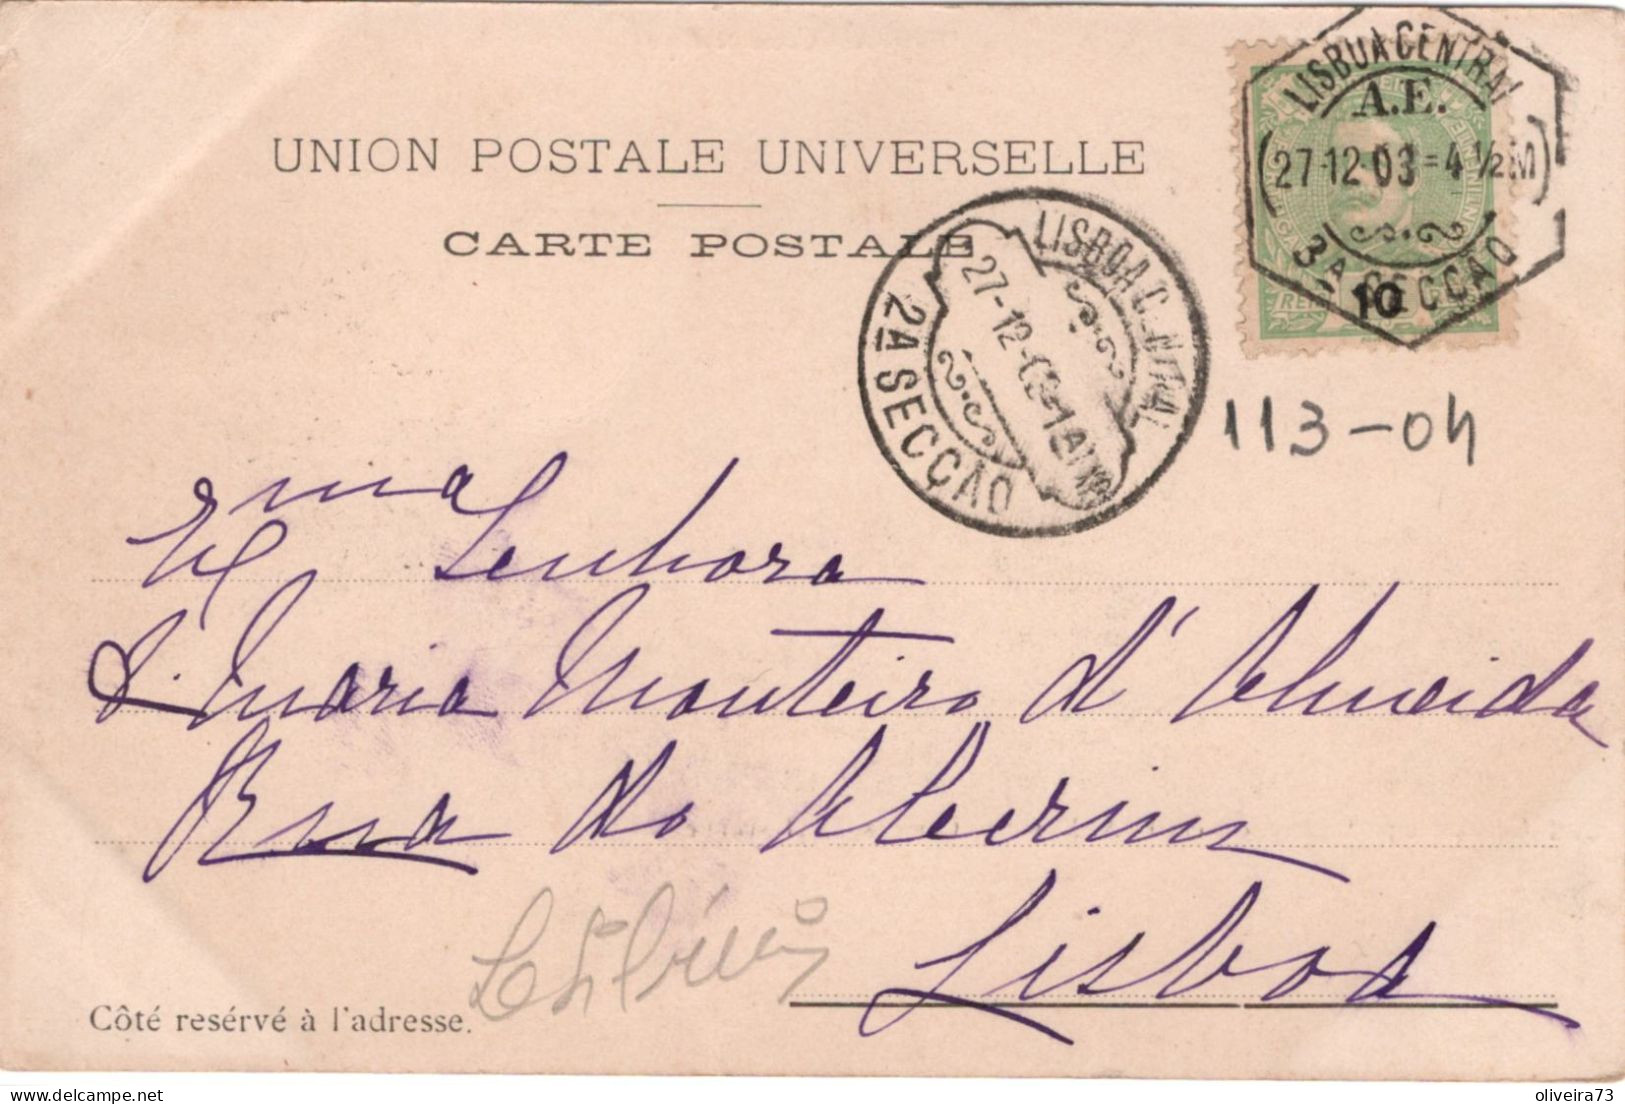 LISBOA CENTRAL
A.E.
27-12-03=4½M
3A SECÇÃO
10
UNION POSTALE UNIVERSELLE
CARTE POSTALE
LISBOA CENTRAL
27-12-03-1
2A SECÇÃO
113-04
Exma Senhora
D. Maria Monteiro d'Almeida
Rua do Alecrim
Lisboa
Côté resérvé à l'adresse.
delcampe.net
oliveira73